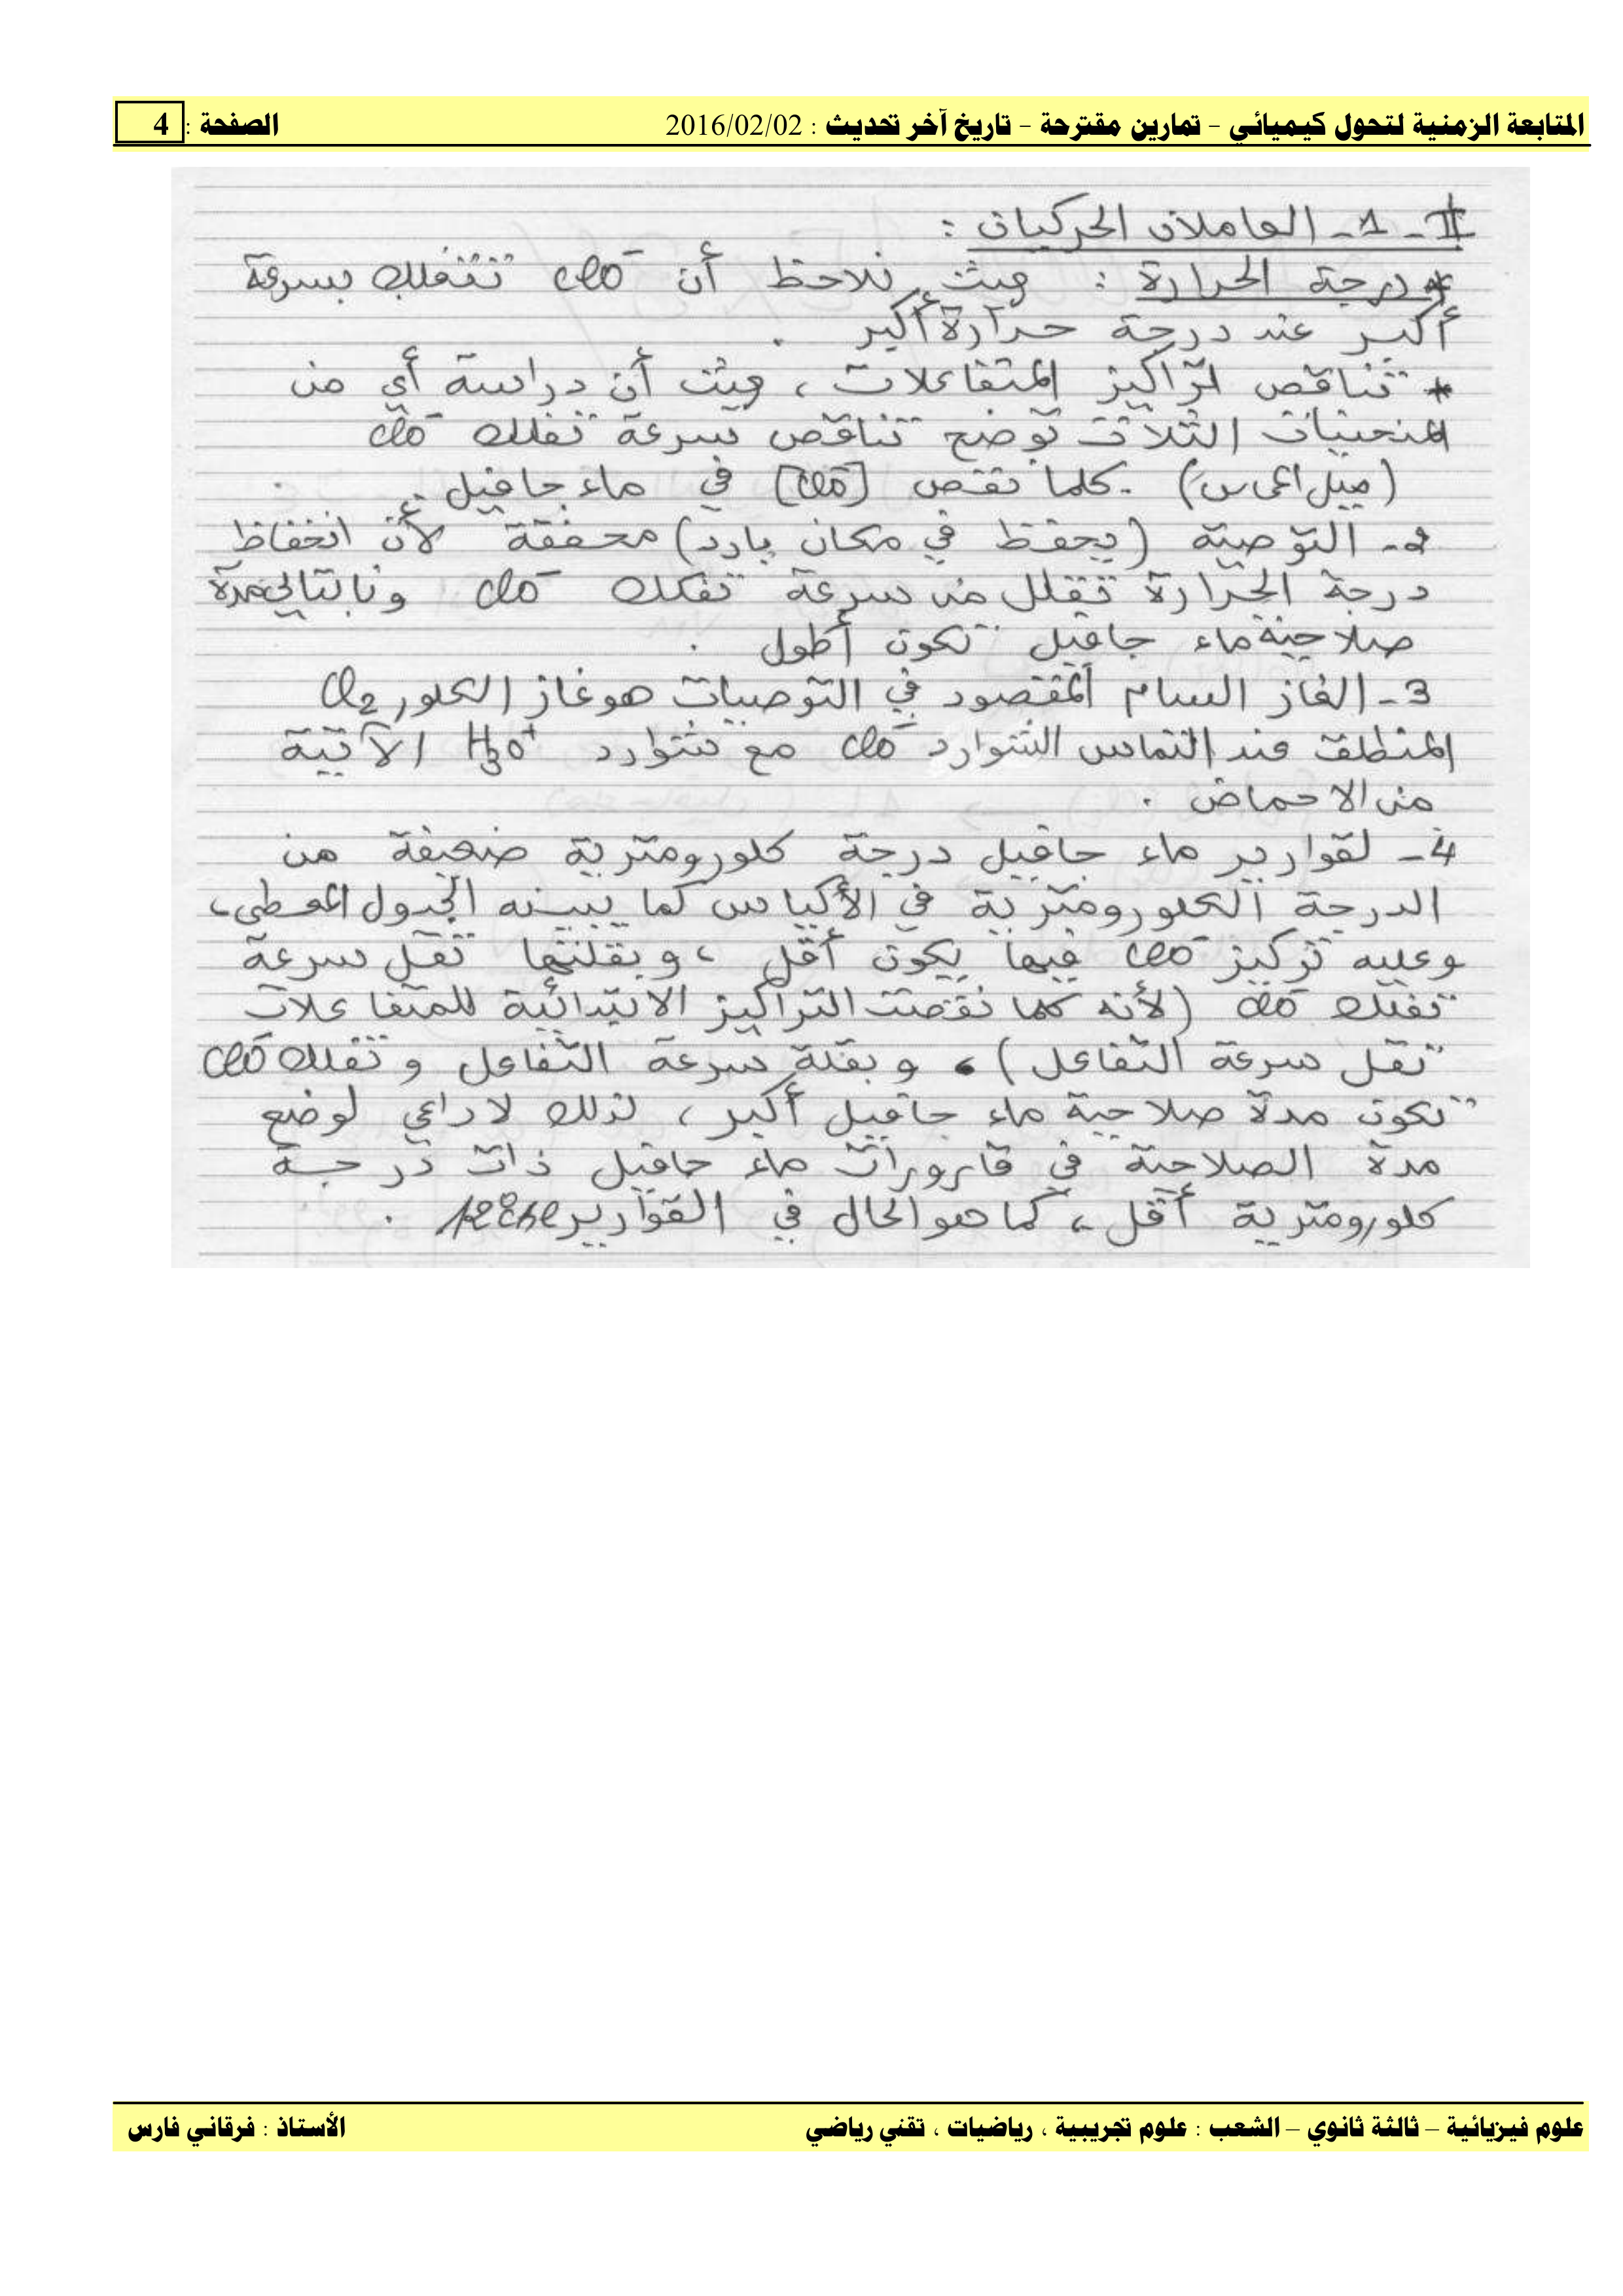 المتابعة الزمنية لتحول كيميائي – تمارين مقترحة – تاريخ آخر تحديث : 2016/02/02 الصفحة : 4
II - 1 - العاملان الحركيان :
* درجة الحرارة : حيث نلاحظ أن ClO⁻ تتفكك بسرعة
أكبر عند درجة حرارة أكبر .
* تناقص تراكيز المتفاعلات ، حيث أن دراسة أي من
المنحنيات الثلاث توضح تناقص سرعة تفكك ClO⁻
(ميل المماس) كلما نقص [ClO⁻] في ماء جافيل .
2 - التوصية (يحفظ في مكان بارد) محققة لأن انخفاظ
درجة الحرارة تقلل من سرعة تفكك ClO⁻ وبالتالي مدة
صلاحية ماء جافيل تكون أطول .
3 - الغاز السام المقصود في التوصيات هو غاز الكلور Cl₂
المنطلق عند التماس الشوارد ClO⁻ مع شوارد H₃O⁺ الآتية
من الاحماض .
4 - لقوارير ماء جافيل درجة كلورومترية ضعيفة من
الدرجة الكلورومترية في الأكياس كما يبينه الجدول المعطى ،
وعليه تركيز ClO⁻ فيها يكون أقل ، وبقلتها تقل سرعة
تفكك ClO⁻ (لأنه كلما نقصت التراكيز الابتدائية للمتفاعلات
تقل سرعة التفاعل) ، وبقلة سرعة التفاعل وتفكك ClO⁻
تكون مدة صلاحية ماء جافيل أكبر ، لذلك لا داعي لوضع
مدة الصلاحية في قارورات ماء جافيل ذات درجة
كلورومترية أقل ، كما هو الحال في القوارير 12°chl .
علوم فيزيائية – ثالثة ثانوي – الشعب : علوم تجريبية ، رياضيات ، تقني رياضي الأستاذ : فرقاني فارس